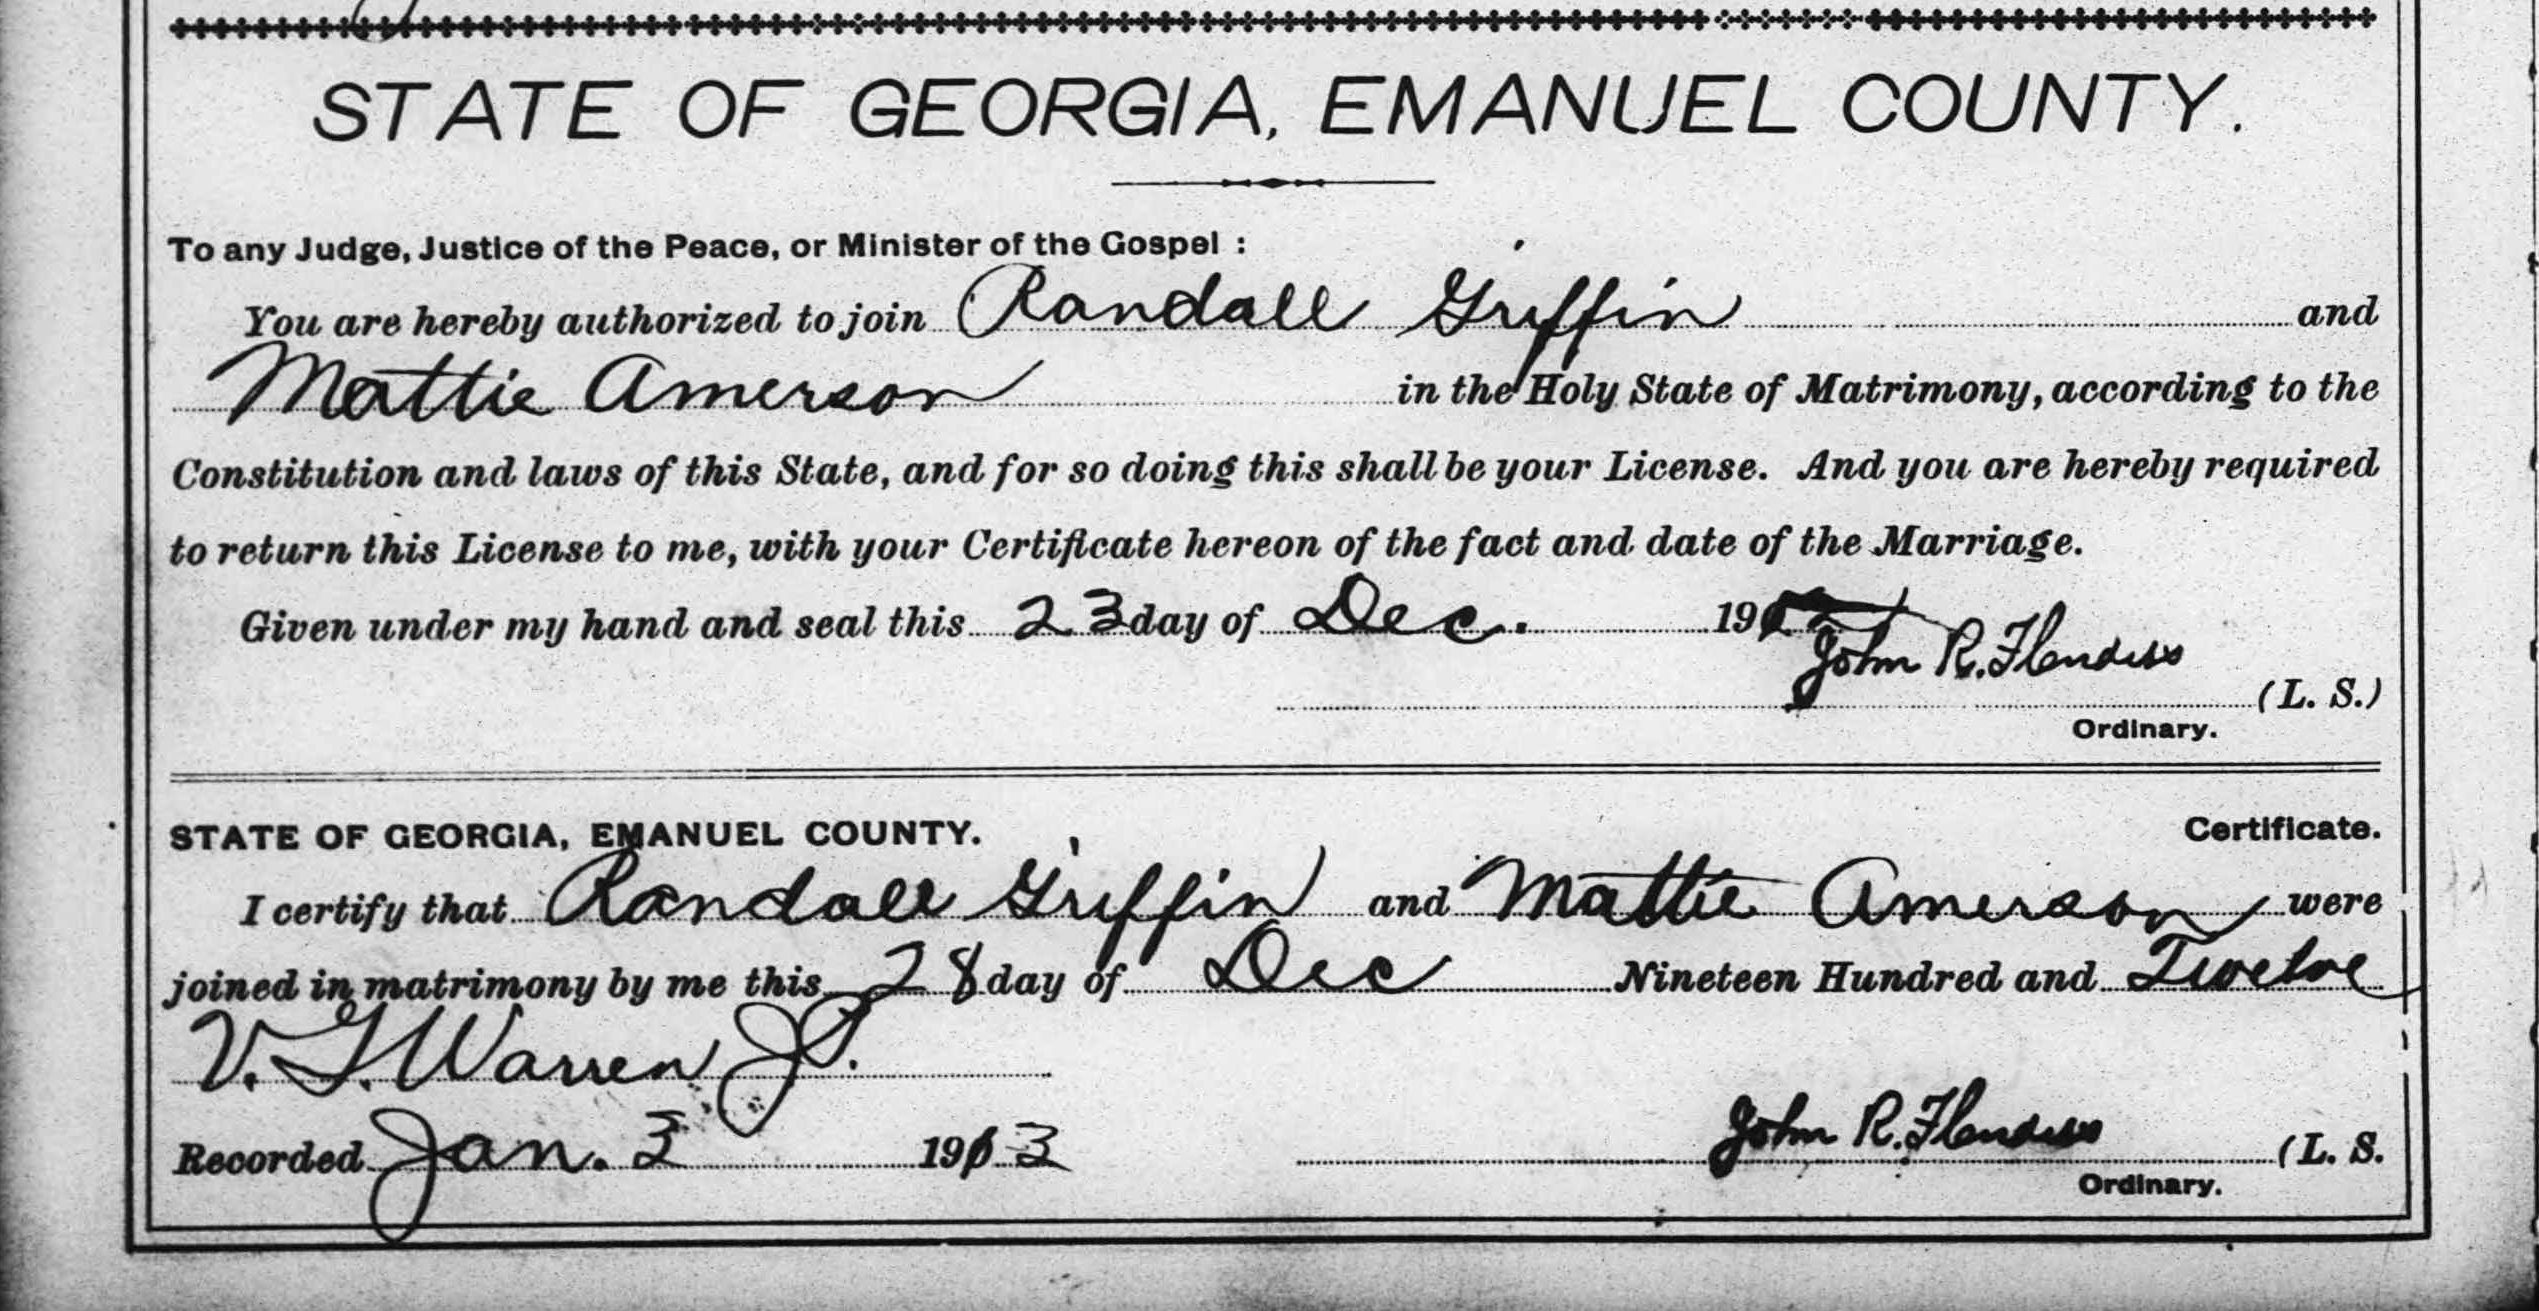 STATE OF GEORGIA, EMANUEL COUNTY.
To any Judge, Justice of the Peace, or Minister of the Gospel :
You are hereby authorized to join Randall Griffin and
Mattie Amerson in the Holy State of Matrimony, according to the
Constitution and laws of this State, and for so doing this shall be your License. And you are hereby required
to return this License to me, with your Certificate hereon of the fact and date of the Marriage.
Given under my hand and seal this 23 day of Dec. 191
John R.
(L. S.)
Ordinary.
STATE OF GEORGIA, EMANUEL COUNTY. Certificate.
I certify that Randall Griffin and Mattie Amerson were
joined in matrimony by me this 28 day of Dec Nineteen Hundred and Twelve
V. G. Warren J.P.
Recorded Jan. 3 1913 John R. (L. S.
Ordinary.